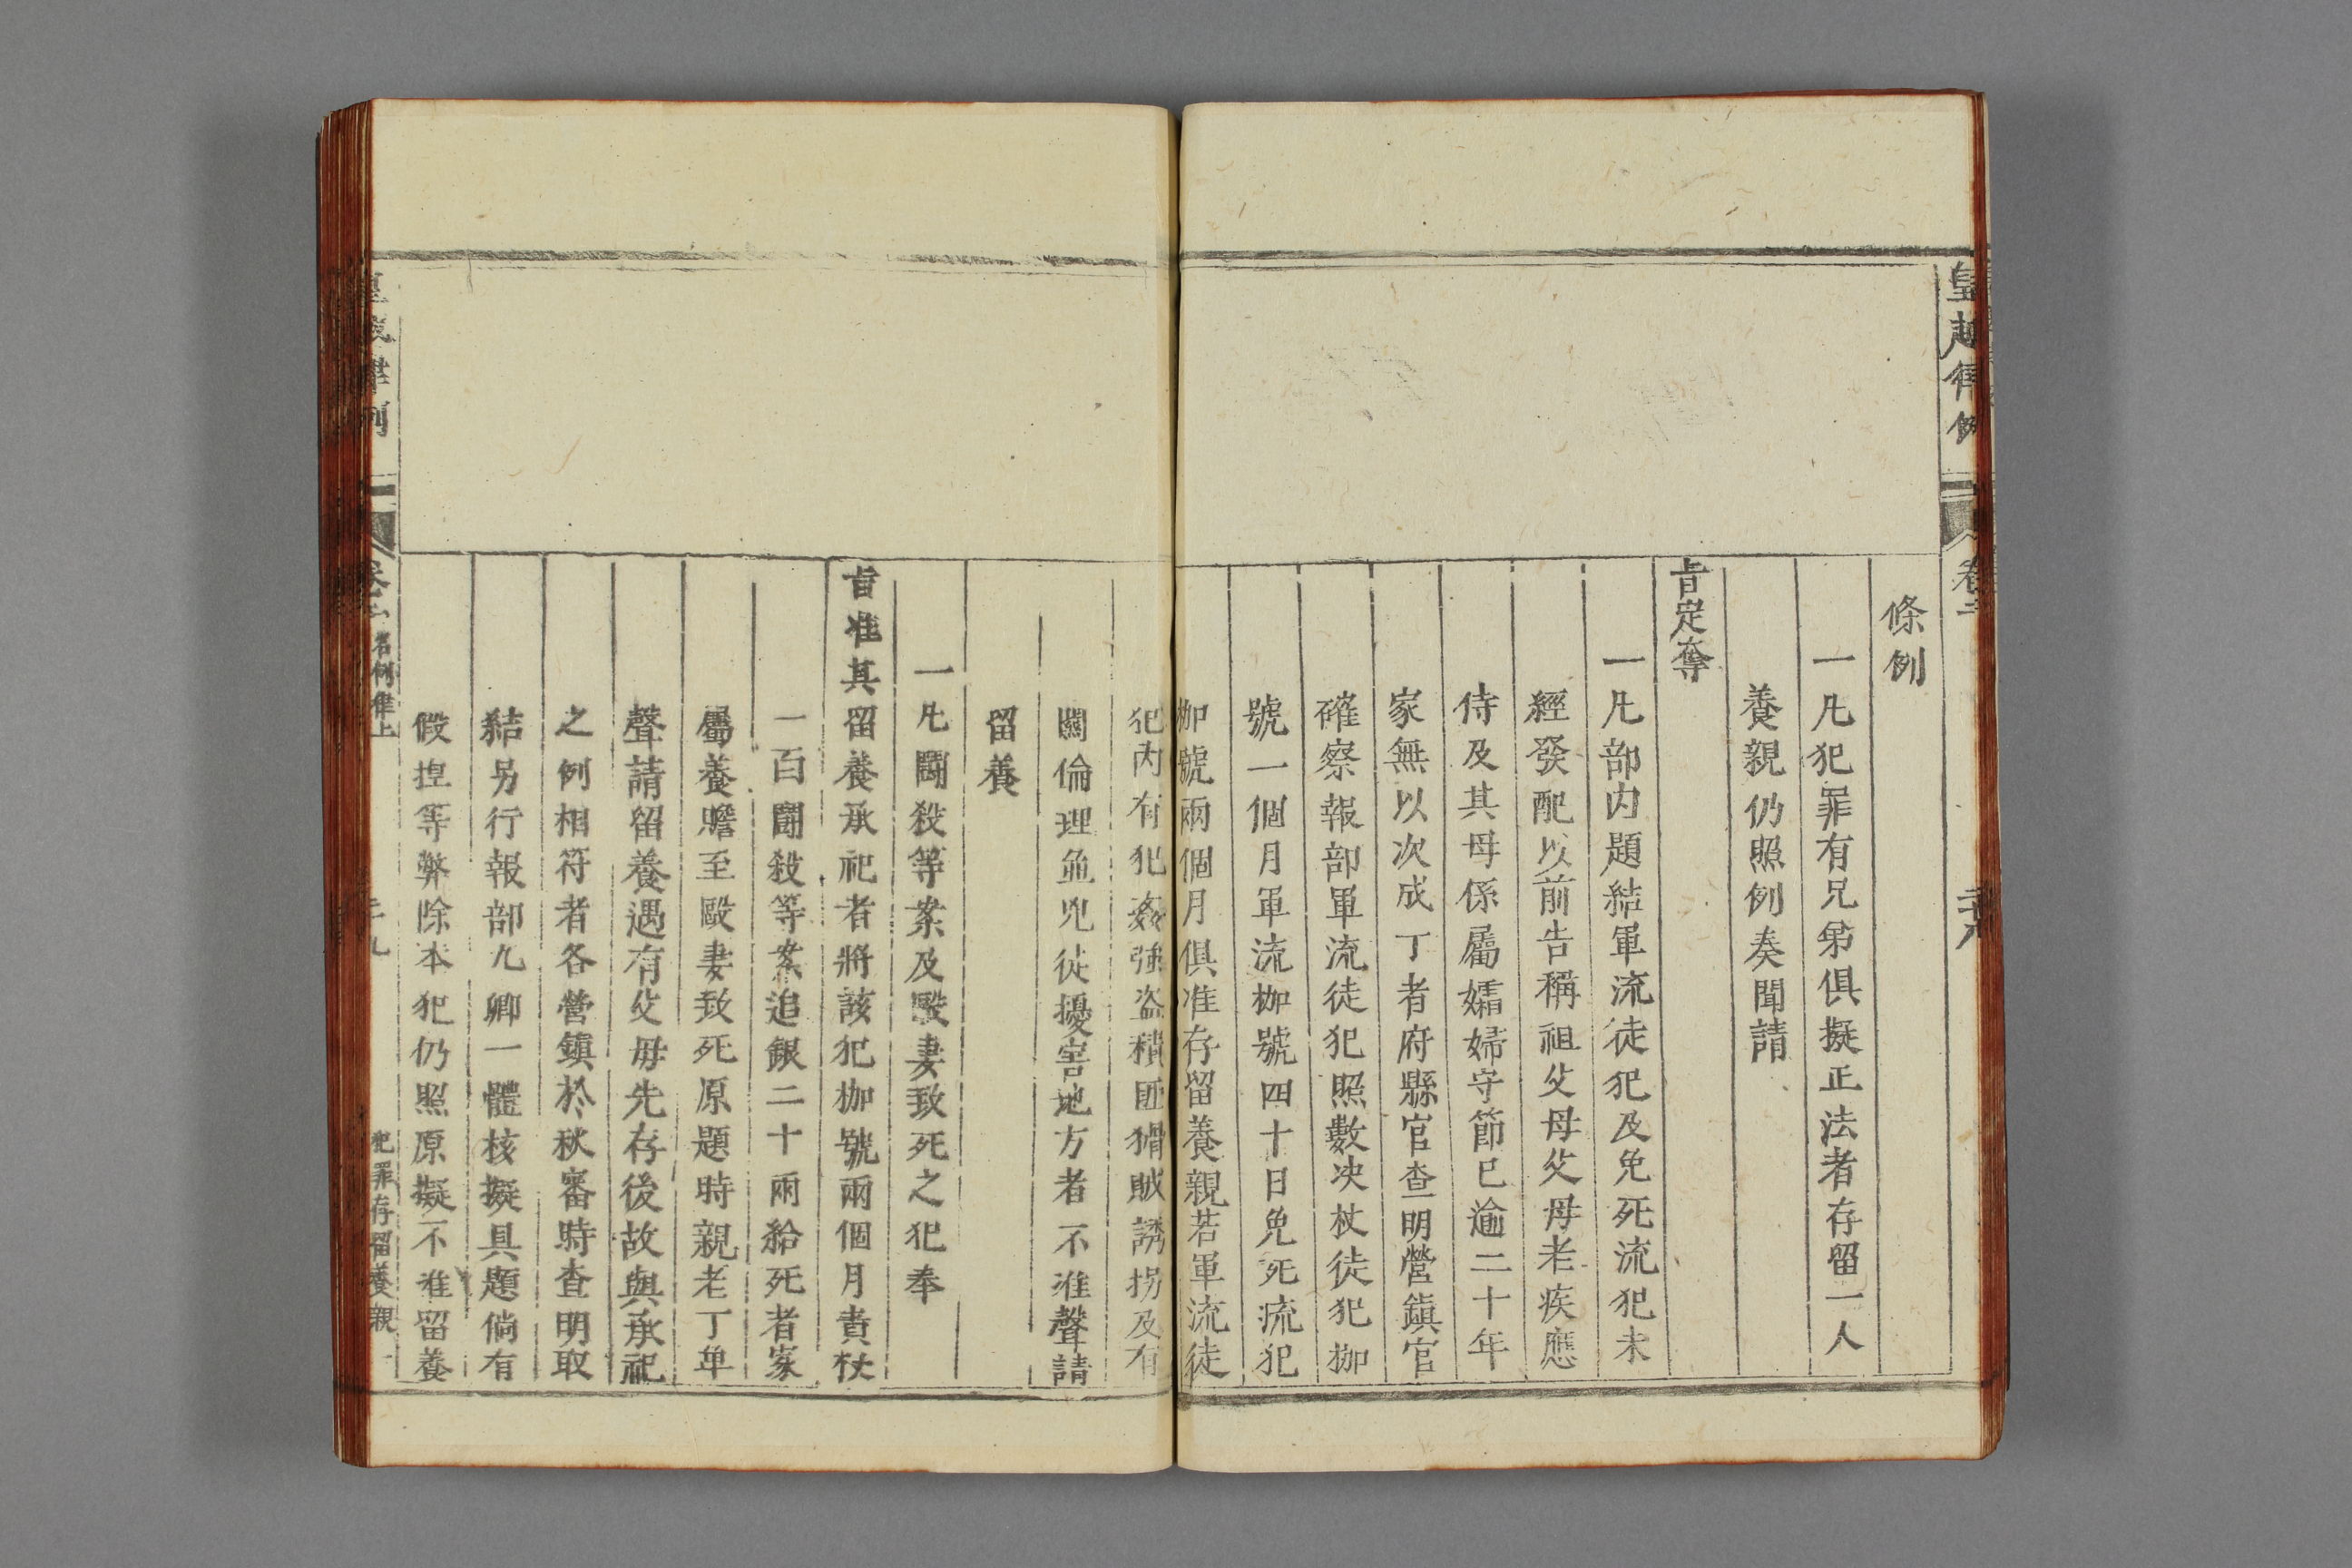 皇越律例
卷二
二十八
條例
一凡犯罪有兄弟俱擬正法者存留一人
養親仍照例奏聞請
旨定奪
一凡部内題結軍流徒犯及免死流犯未
經發配以前告稱祖父母父母老疾應
侍及其母係屬孀婦守節已逾二十年
家無以次成丁者府縣官查明營鎮官
確察報部軍流徒犯照數决杖徒犯枷
號一個月軍流枷號四十日免死流犯
枷號兩個月俱准存留養親若軍流徒
犯内有犯姦強盗積匪猾賊誘拐及有
關倫理並兇徒擾害地方者不准聲請
留養
一凡鬪殺等案及毆妻致死之犯奉
旨准其留養承祀者將該犯枷號兩個月責杖
一百鬪殺等案追銀二十兩給死者家
屬養贍至毆妻致死原題時親老丁单
聲請留養遇有父母先存後故與承祀
之例相符者各營鎮於秋審時查明取
結另行報部九卿一體核擬具題倘有
假捏等弊除本犯仍照原擬不准留養
律例
卷二
名例律上
二十九
犯罪存留養親